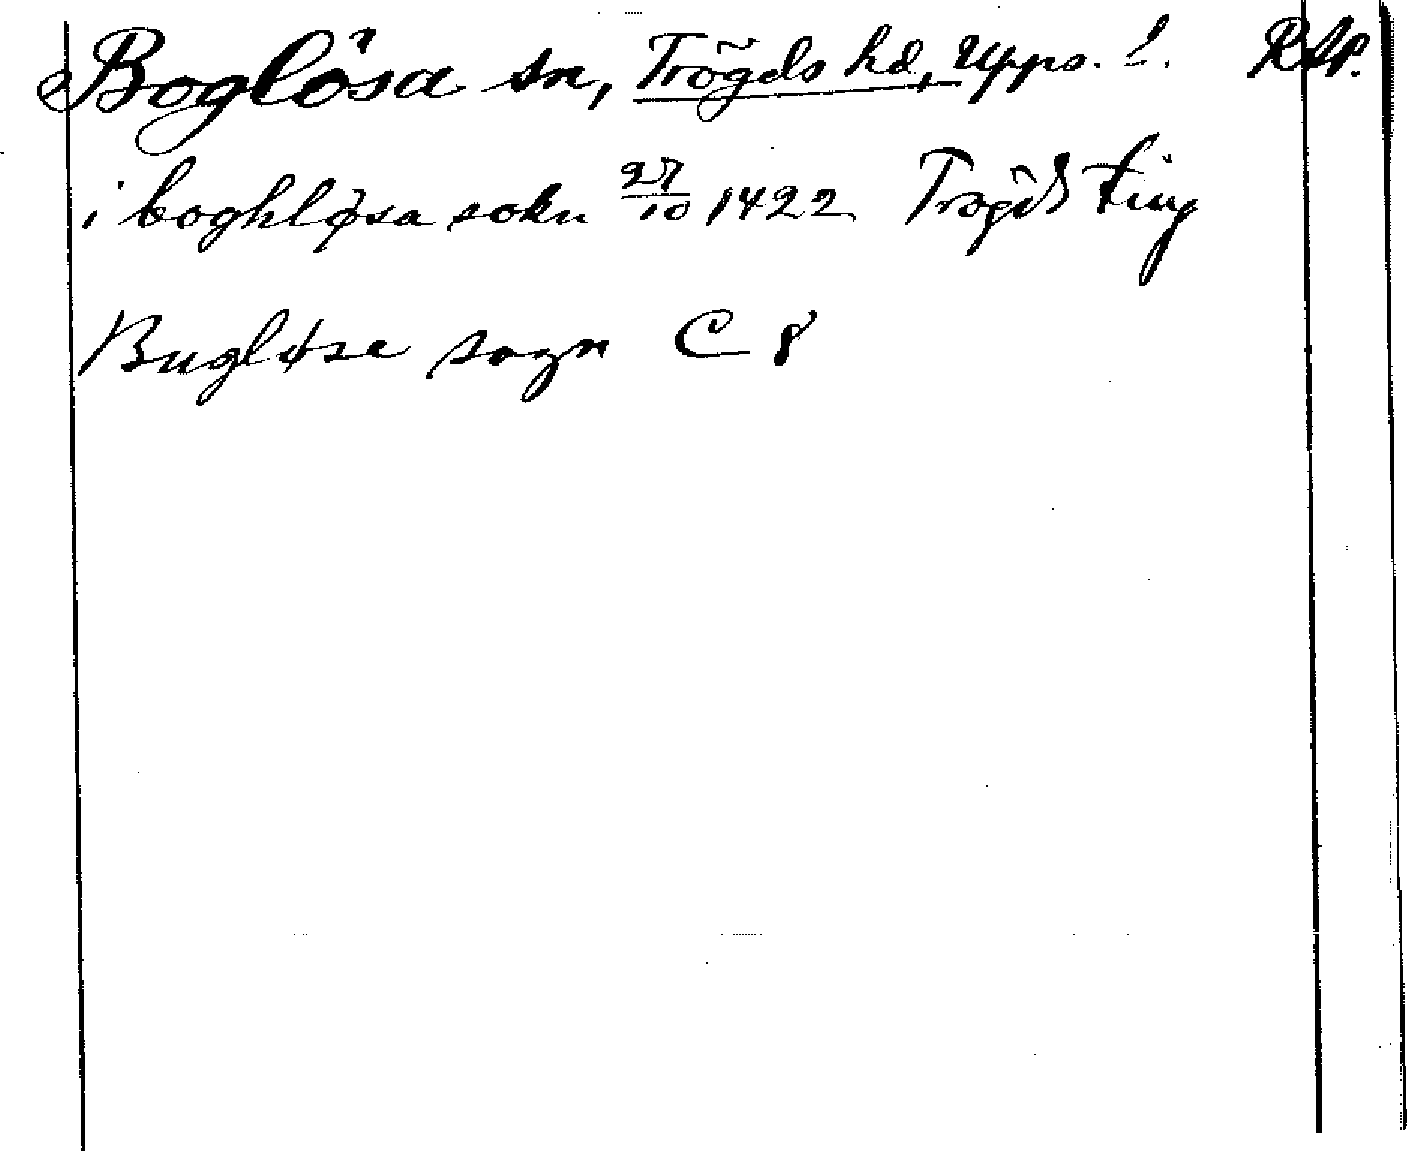 Boglösa sn, Trögds hd, Upps. l. RAP.
i boghløsa sokn 27/10 1422 Trøgd ting
Bugløse sogn C 8